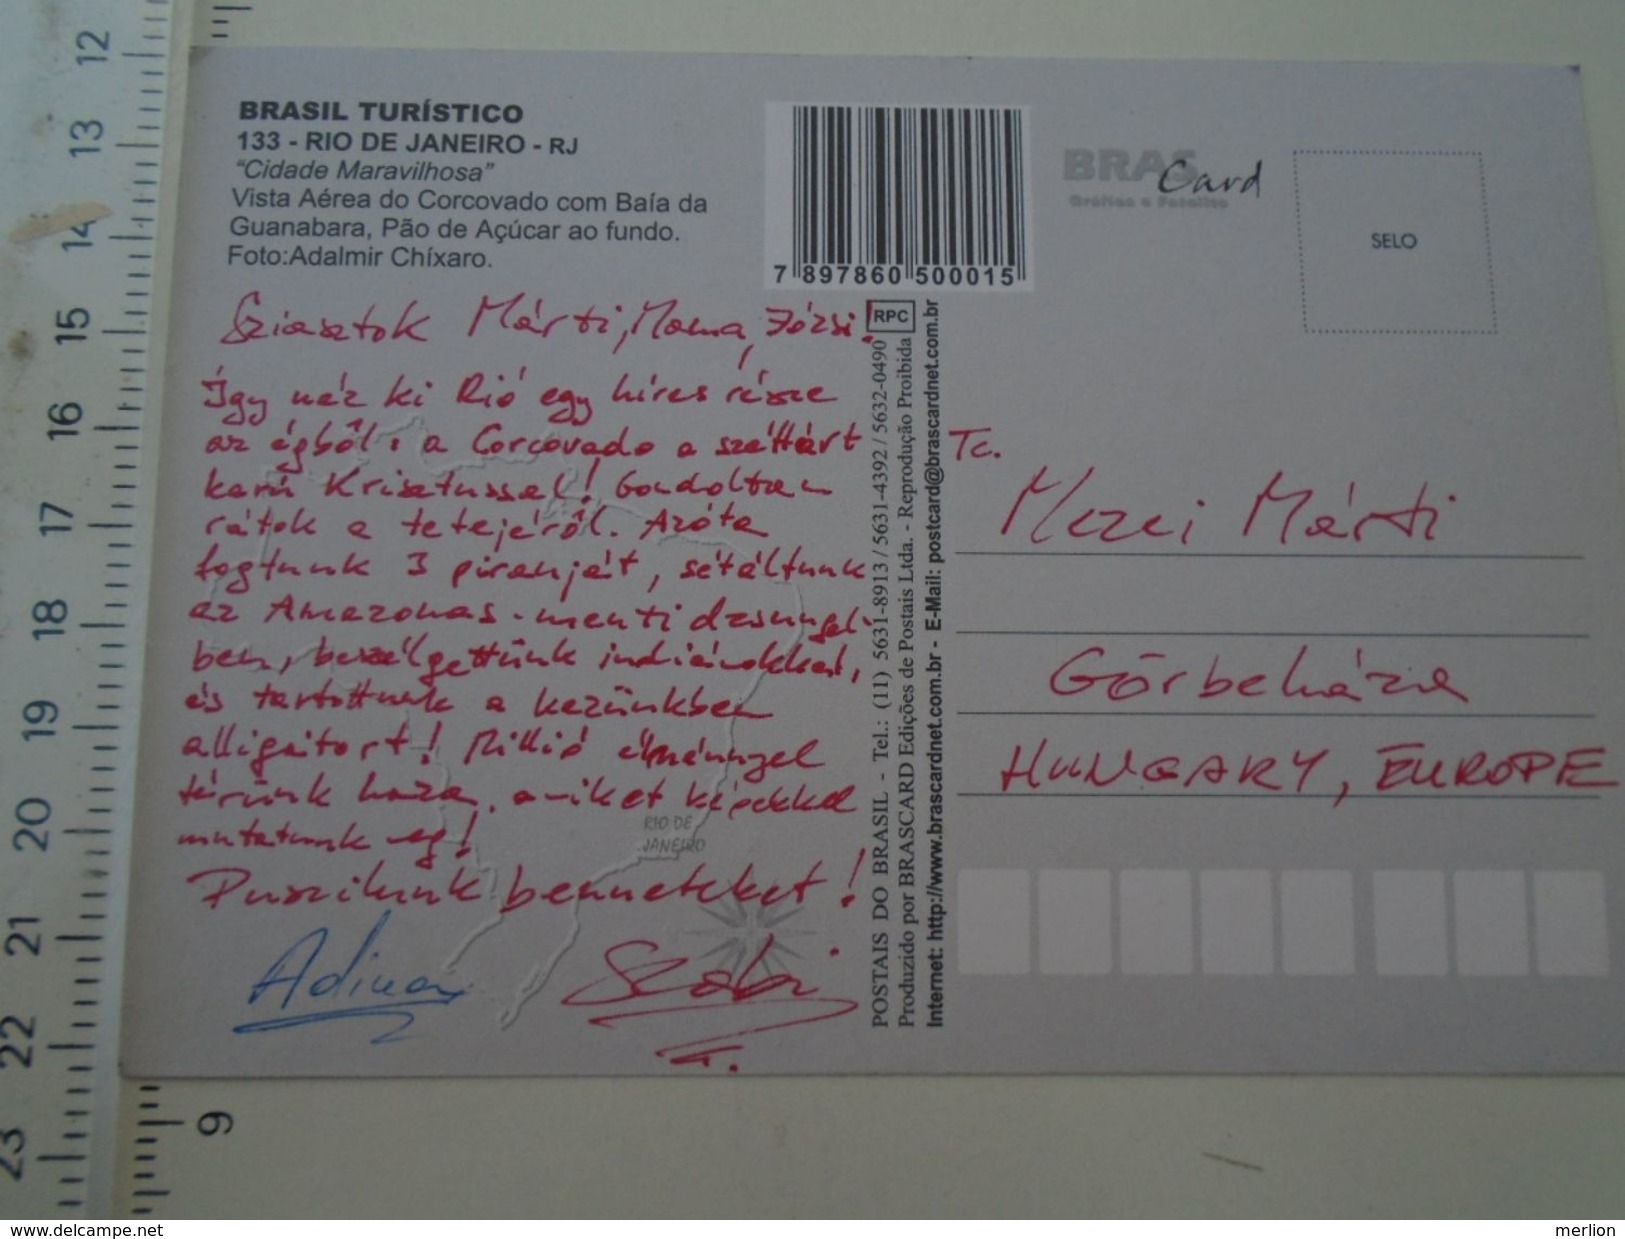 BRASIL TURÍSTICO
133 - RIO DE JANEIRO - RJ
"Cidade Maravilhosa"
Vista Aérea do Corcovado com Baía da
Guanabara, Pão de Açúcar ao fundo.
Foto:Adalmir Chíxaro.
7 897860 500015
BRAS Card
SELO
RPC
Sziasztok Márti, Mama, Józsi!
Így néz ki Rió egy híres része
az égből: a Corcovado a széttárt
karú Krisztussal! Gondoltam
rátok a tetejéről. Azóta
fogtunk 3 piranját, sétáltunk
az Amazonas-menti dzsungel-
ben, beszélgettünk indiánokkal,
és tartottunk a kezünkben
alligátort! Millió élménnyel
térünk haza, amiket képekkel
mutatunk meg!
Puszilunk benneteket!
Szabi
RIO DE
JANEIRO
POSTAIS DO BRASIL - Tel.: (11) 5631-8913 / 5631-4392 / 5632-0490
Produzido por BRASCARD Edições de Postais Ltda. - Reprodução Proibida
Internet: http://www.brascardnet.com.br - E-Mail: postcard@brascardnet.com.br
Mezei Márti
Görbeháza
HUNGARY, EUROPE
12
13
14
15
16
17
18
19
20
21
22
23
9
www.delcampe.net
merlion